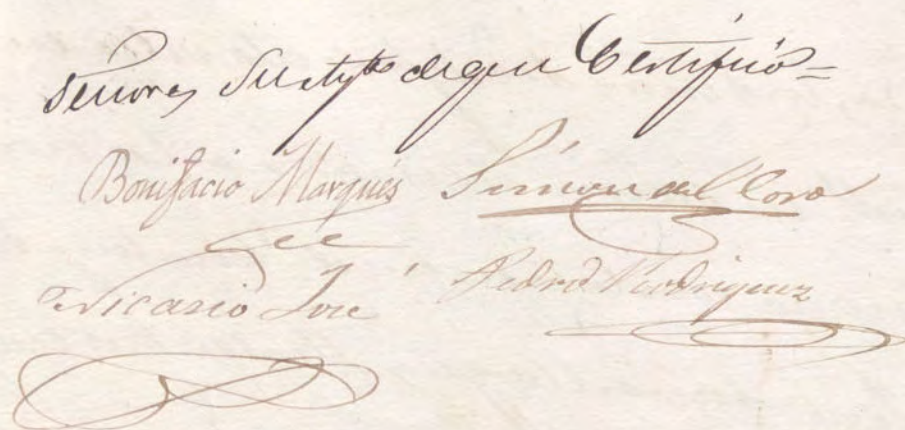 Señores de que Certifico=
Bonifacio Marqués Simon del Coro
Nicasio José Pedro Rodriguez